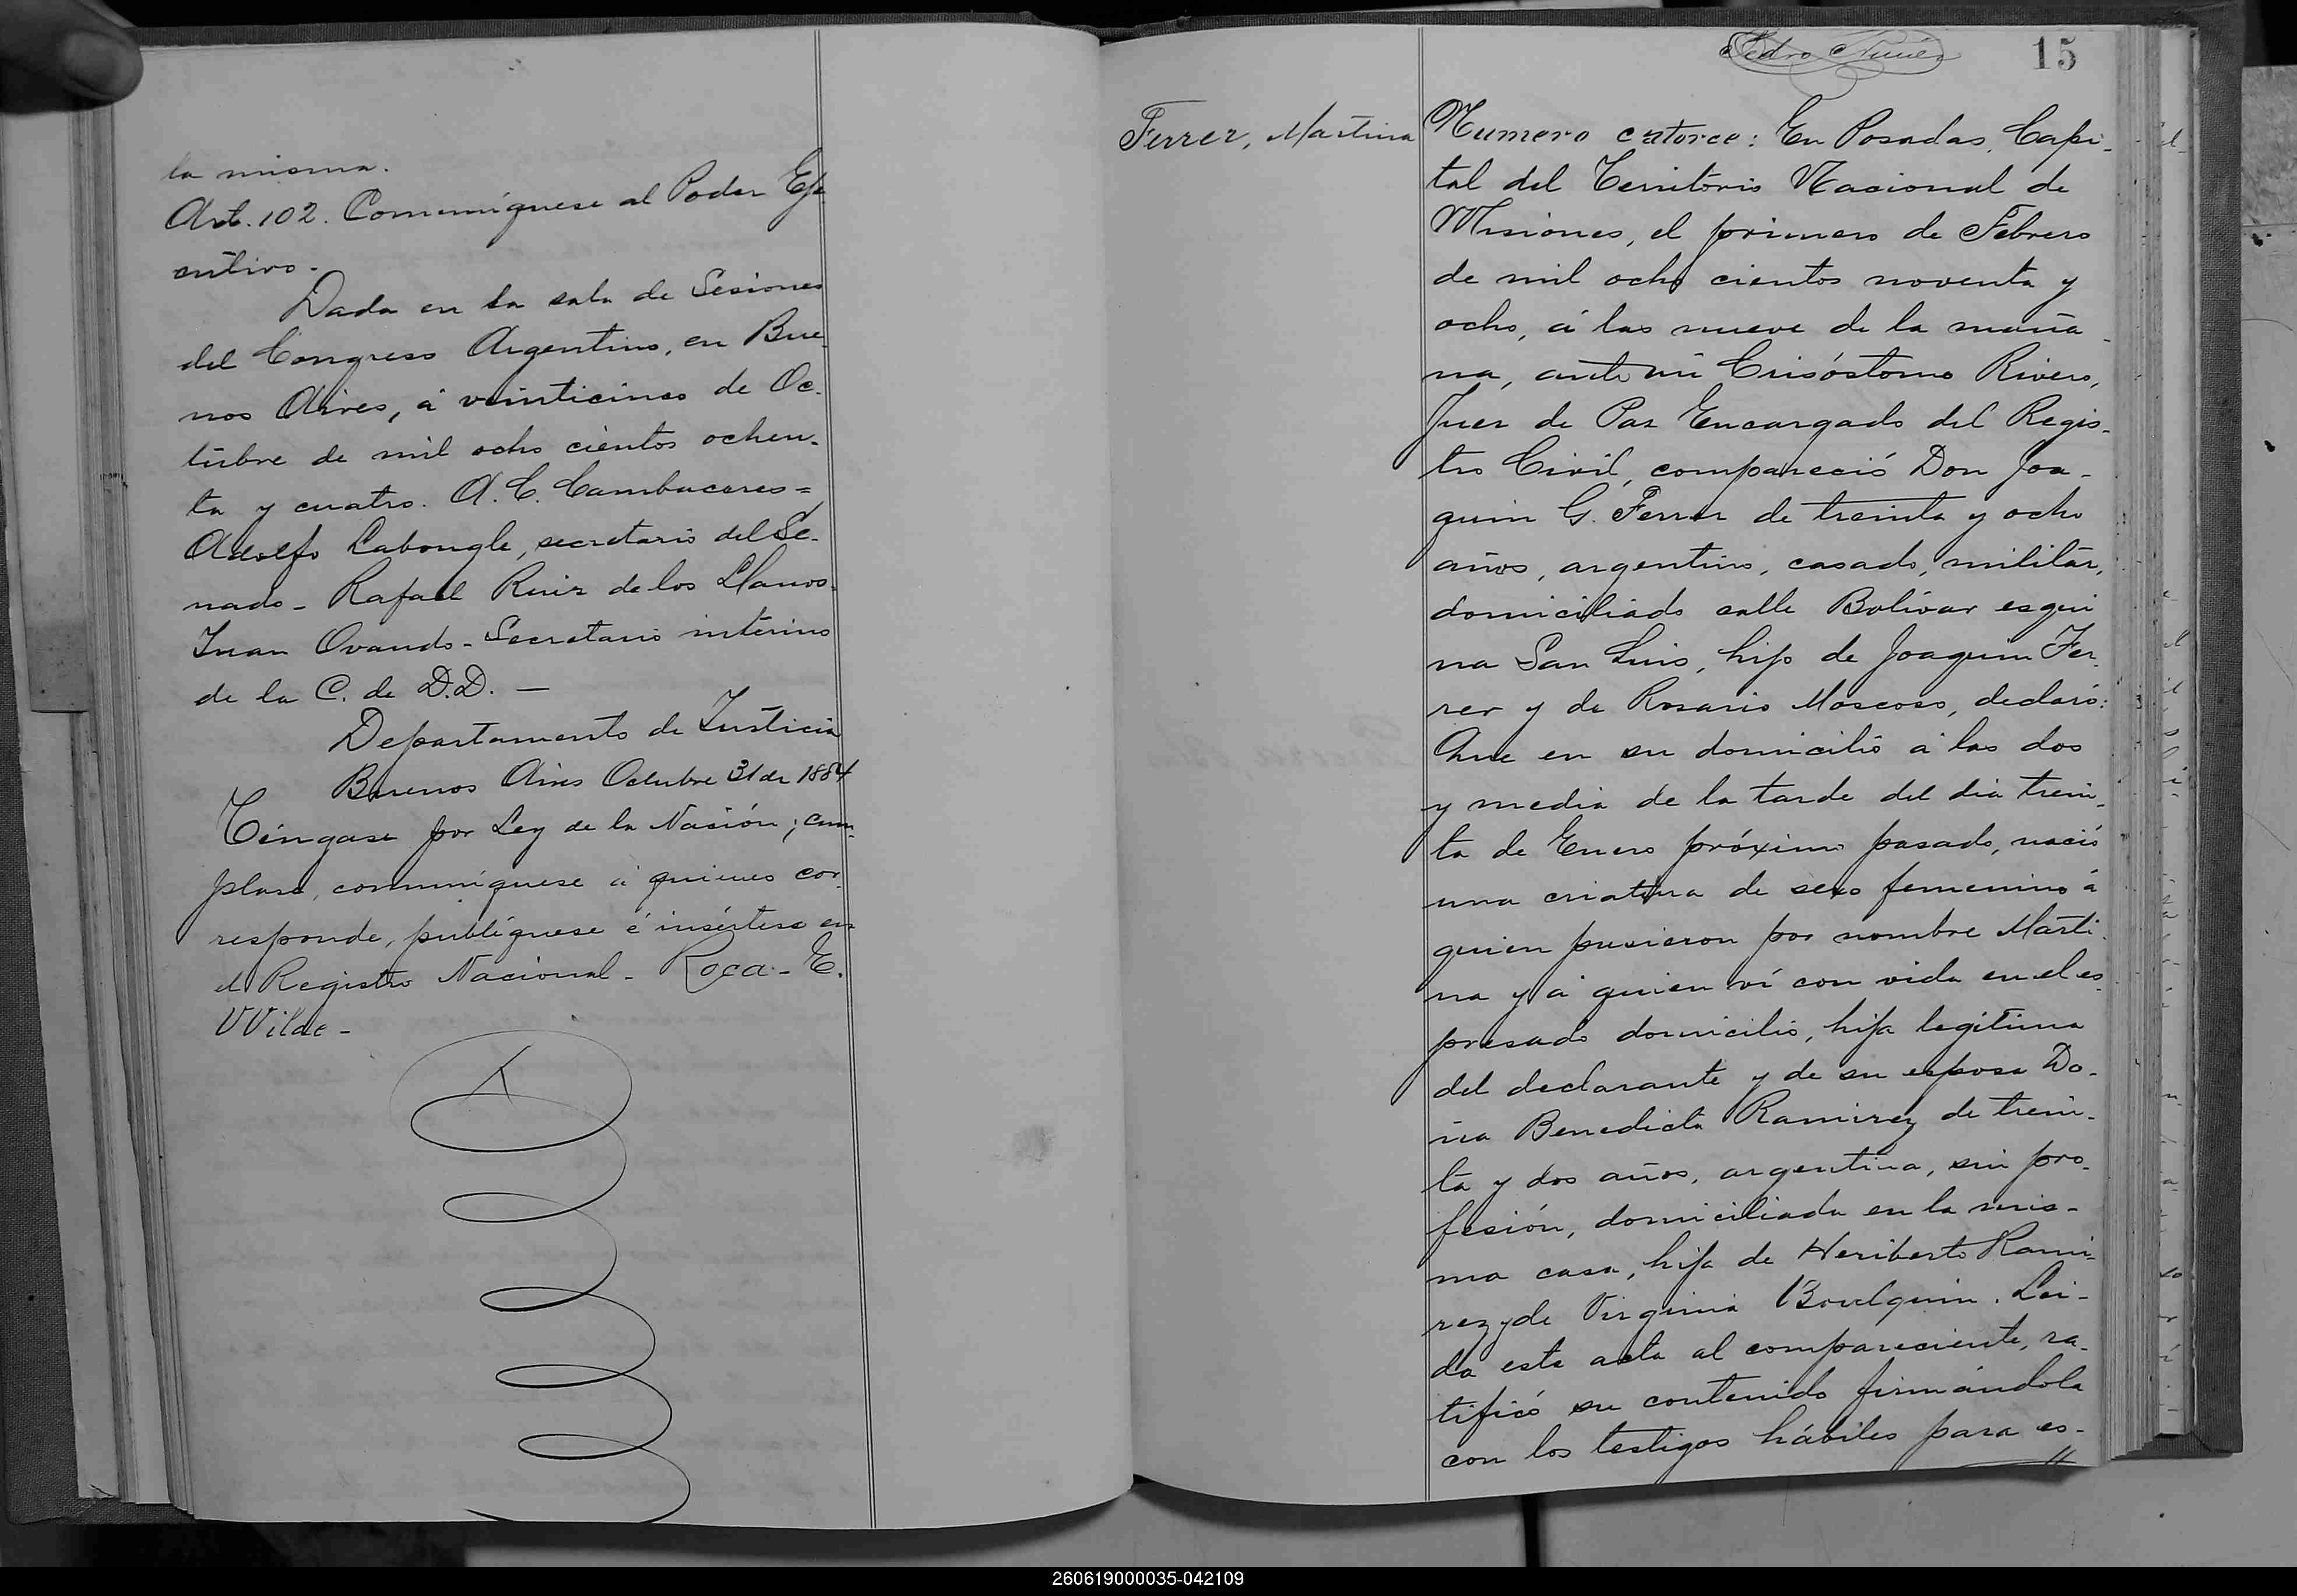 la misma.
Art. 102. Comuníquese al Poder Eje
cutivo.
Dada en la sala de Sesiones
del Congreso Argentino, en Bue
nos Aires, á veinticinco de Oc-
tubre de mil ocho cientos ochen-
ta y cuatro. A. C. Cambaceres=
Adolfo Labougle, secretario del Se-
nado- Rafael Ruiz de los Llanos-
Juan Ovando- Secretario interino
de la C. de D.D. —
Departamento de Justicia
Buenos Aires Octubre 31 de 1884
Téngase por Ley de la Nación; cum-
plase, comuníquese á quienes cor-
responde, publíquese é insértese en
el Registro Nacional- Roca- E.
Wilde-
Pedro
15
Ferrer, Martina
Numero catorce: En Posadas, Capi-
tal del Territorio Nacional de
Misiones, el primero de Febrero
de mil ocho cientos noventa y
ocho, á las nueve de la maña-
na, ante mi Crisóstomo Rivero,
Juez de Paz Encargado del Regis-
tro Civil, compareció Don Joa-
quin G. Ferrer de treinta y ocho
años, argentino, casado, militar,
domiciliado calle Bolívar esqui
na San Luis, hijo de Joaquin Fer-
rer y de Rosario Moscoso, declaró:
Que en su domicilio á las dos
y media de la tarde del dia trein-
ta de Enero próximo pasado, nació
una criatura de sexo femenino á
quien pusieron por nombre Marti-
na y á quien ví con vida en el es-
presado domicilio, hija legítima
del declarante y de su esposa Do-
ña Benedicta Ramirez de trein-
ta y dos años, argentina, sin pro-
fesión, domiciliada en la mis-
ma casa, hija de Heriberto Rami-
rez y de Virginia . Lei-
da esta acta al compareciente, ra-
tificó su contenido firmándola
con los testigos hábiles para es-
260619000035-042109